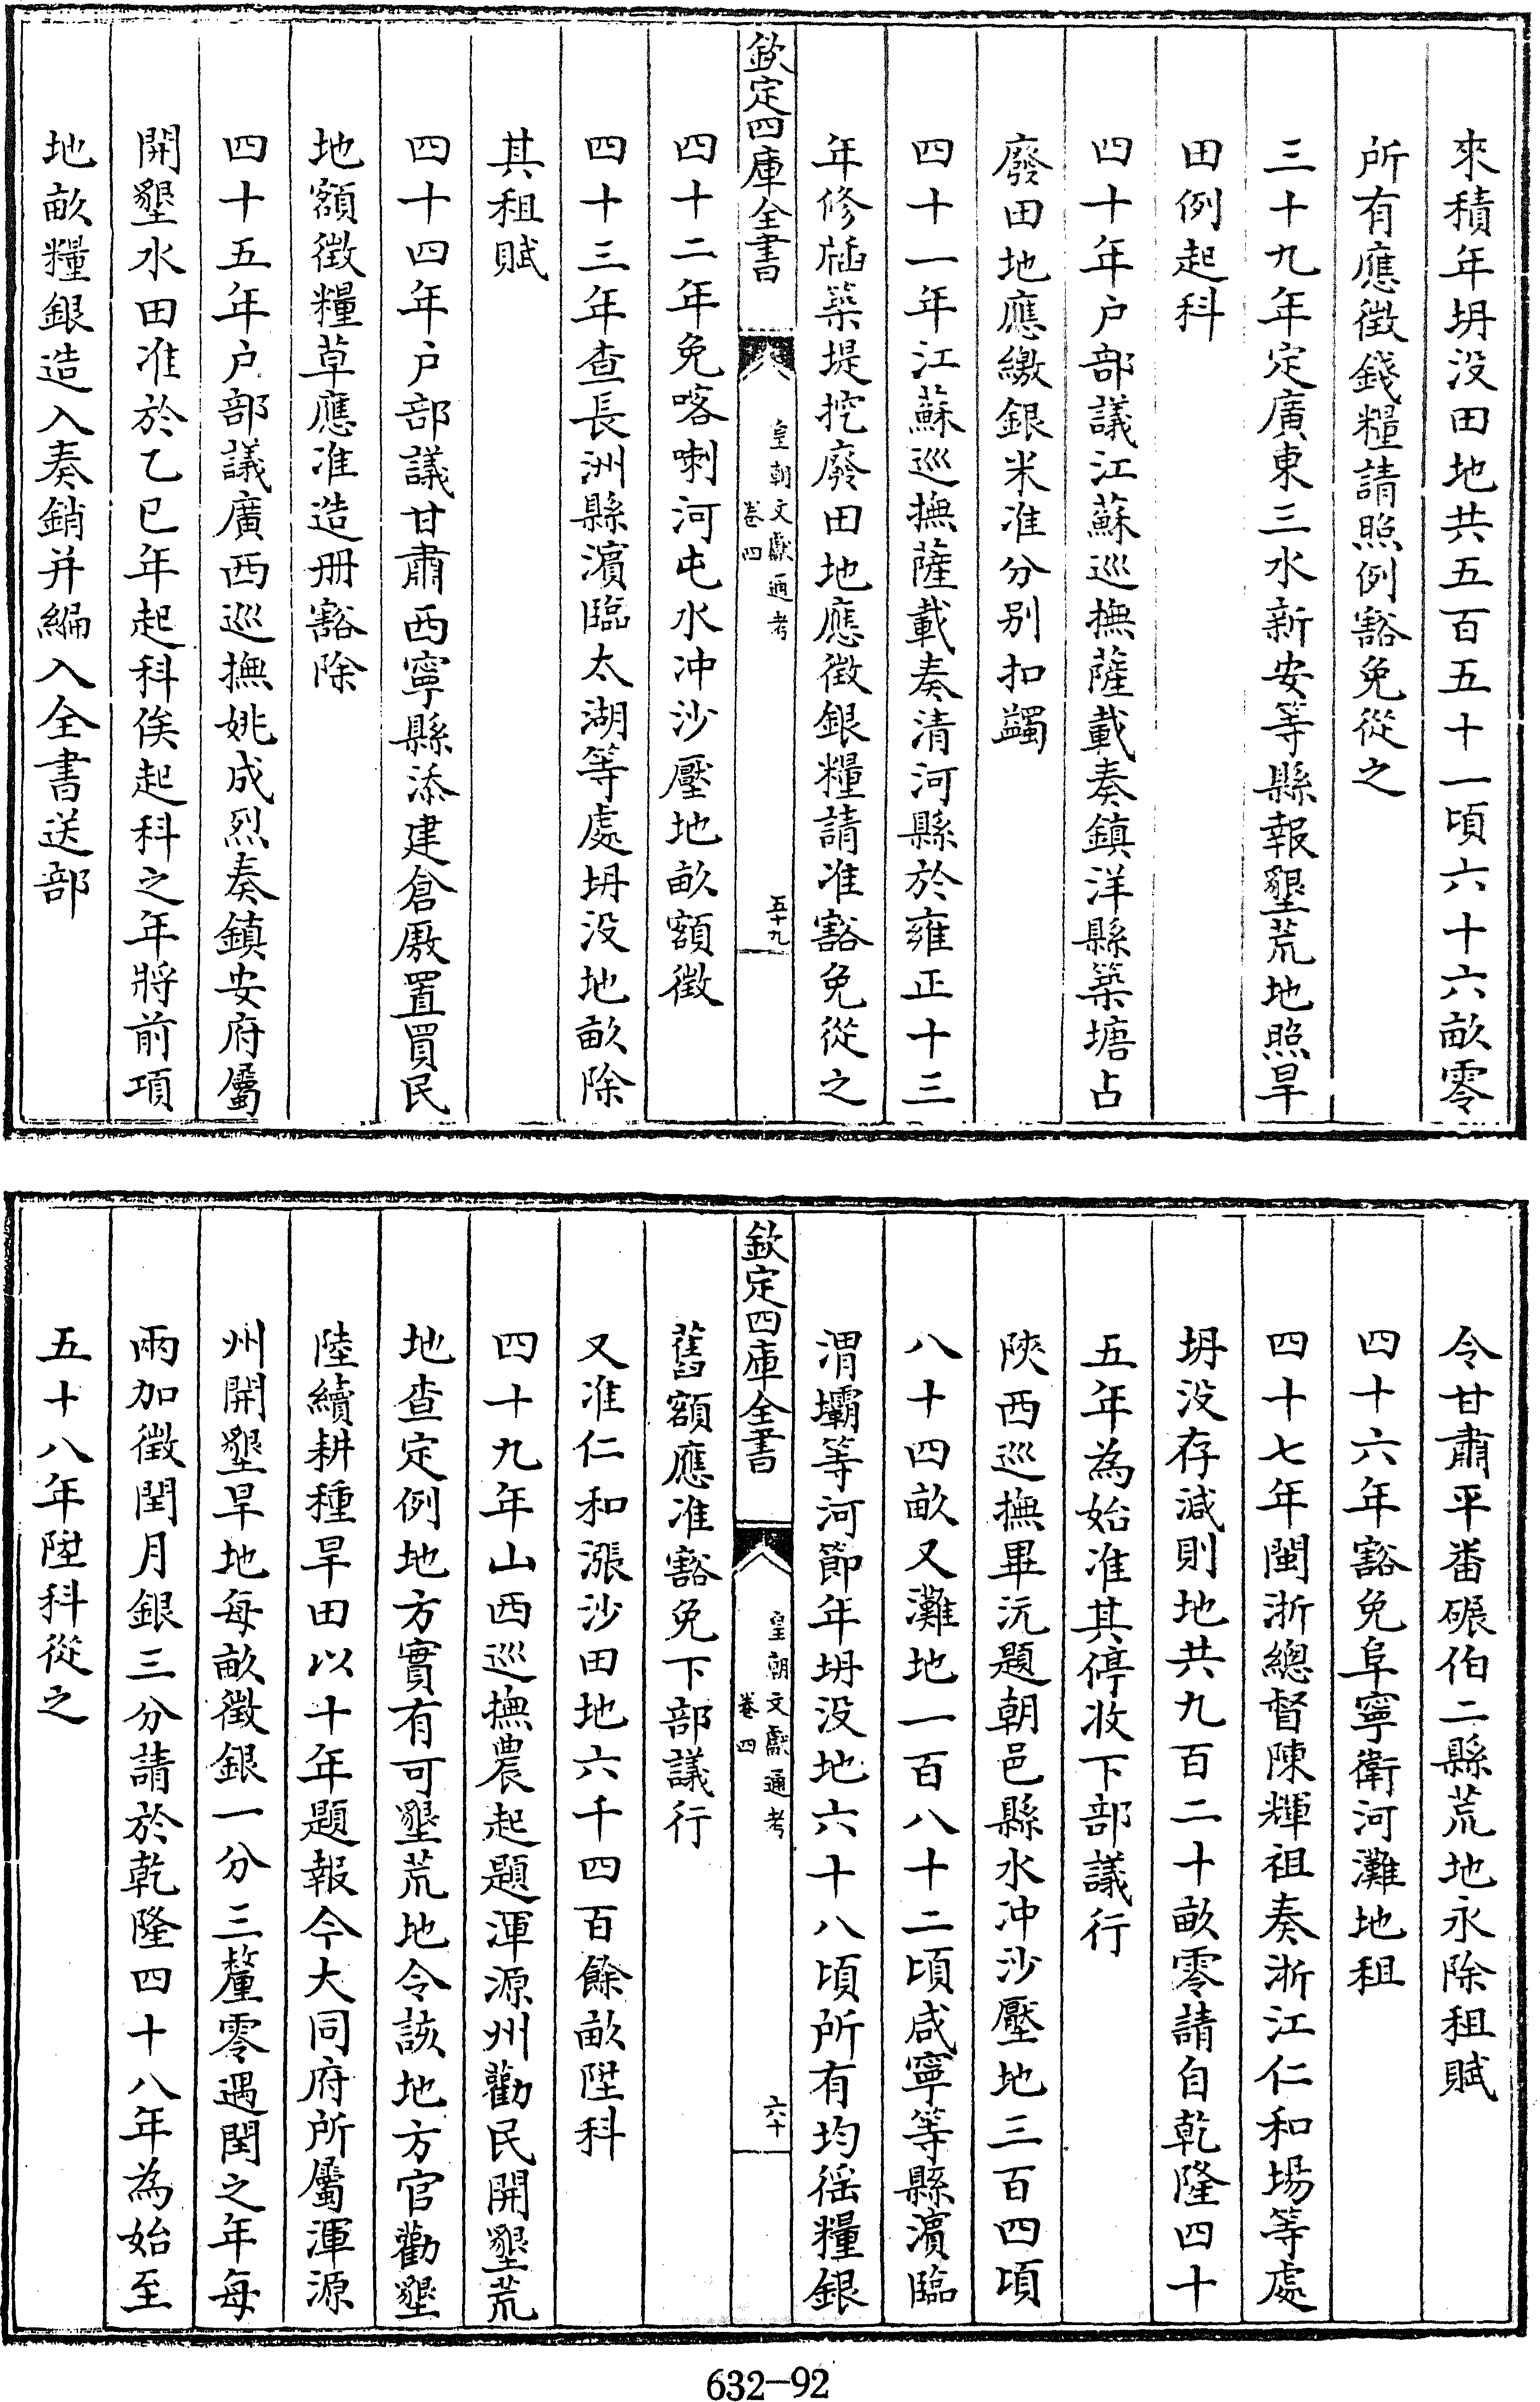 來積年坍没田地共五百五十一頃六十六畝零
所有應徵錢糧請照例豁免從之
三十九年定廣東三水新安等縣報墾荒地照旱
田例起科
四十年户部議江蘇巡撫薩載奏鎮洋縣築塘占
廢田地應繳銀米准分别扣蠲
四十一年江蘇巡撫薩載奏清河縣於雍正十三
年修牐築堤挖廢田地應徵銀糧請准豁免從之
欽定四庫全書
皇朝文獻通考
卷四
五十九
四十二年免喀喇河屯水冲沙壓地畝額徵
四十三年查長洲縣濵臨太湖等處坍没地畝除
其租賦
四十四年户部議甘肅西寧縣添建倉厫置買民
地額徵糧草應准造册豁除
四十五年户部議廣西巡撫姚成烈奏鎮安府屬
開墾水田准於乙巳年起科俟起科之年將前項
地畝糧銀造入奏銷并編入全書送部
令甘肅平番碾伯二縣荒地永除租賦
四十六年豁免阜寧衛河灘地租
四十七年閩浙總督陳輝祖奏浙江仁和場等處
坍没存減則地共九百二十畝零請自乾隆四十
五年為始准其停收下部議行
陜西巡撫畢沅題朝邑縣水冲沙壓地三百四頃
八十四畝又灘地一百八十二頃咸寧等縣濵臨
渭壩等河節年坍没地六十八頃所有均徭糧銀
欽定四庫全書
皇朝文獻通考
卷四
六十
舊額應准豁免下部議行
又准仁和漲沙田地六千四百餘畝陞科
四十九年山西巡撫農起題渾源州勸民開墾荒
地查定例地方實有可墾荒地令該地方官勸墾
陸續耕種旱田以十年題報今大同府所屬渾源
州開墾旱地每畝徵銀一分三釐零遇閏之年每
兩加徵閏月銀三分請於乾隆四十八年為始至
五十八年陞科從之
632-92